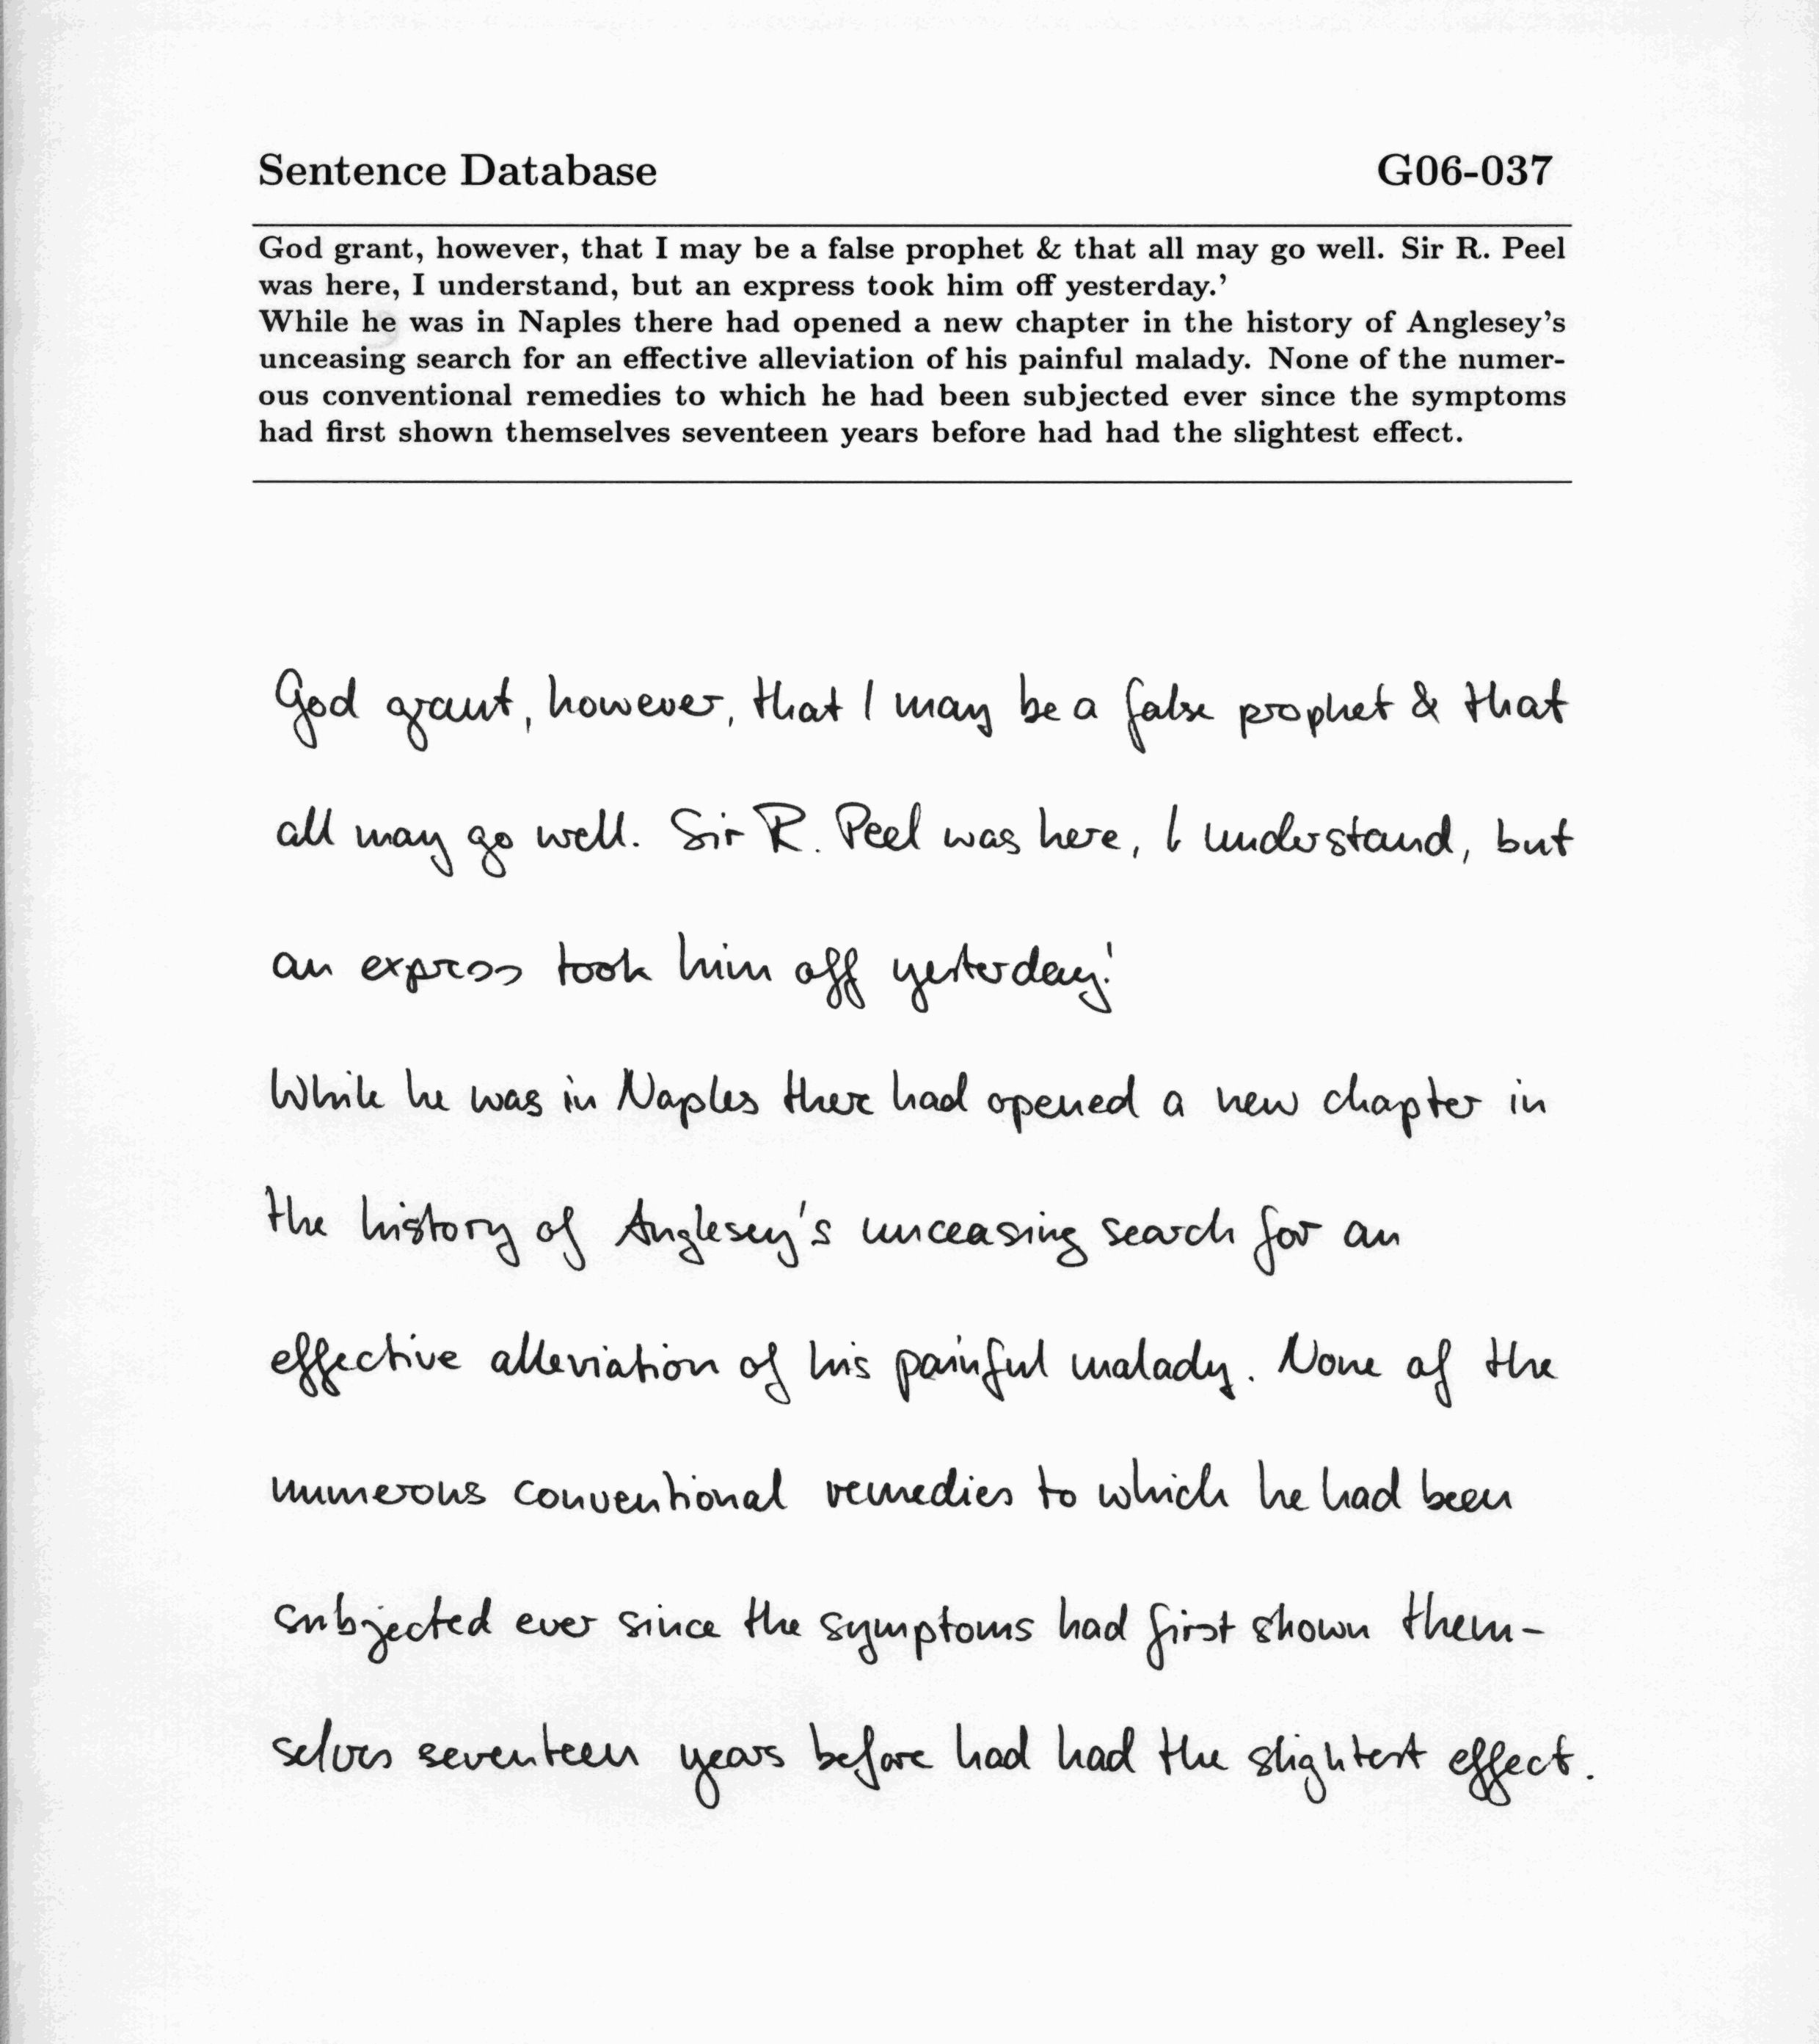 Sentence Database G06-037
God grant, however, that I may be a false prophet & that all may go well. Sir R. Peel
was here, I understand, but an express took him off yesterday.'
While he was in Naples there had opened a new chapter in the history of Anglesey's
unceasing search for an effective alleviation of his painful malady. None of the numer-
ous conventional remedies to which he had been subjected ever since the symptoms
had first shown themselves seventeen years before had had the slightest effect.
God grant, however, that I may be a false prophet & that
all may go well. Sir R. Peel was here, I understand, but
an express took him off yesterday.'
While he was in Naples there had opened a new chapter in
the history of Anglesey's unceasing search for an
effective alleviation of his painful malady. None of the
numerous conventional remedies to which he had been
subjected ever since the symptoms had first shown them-
selves seventeen years before had had the slightest effect.